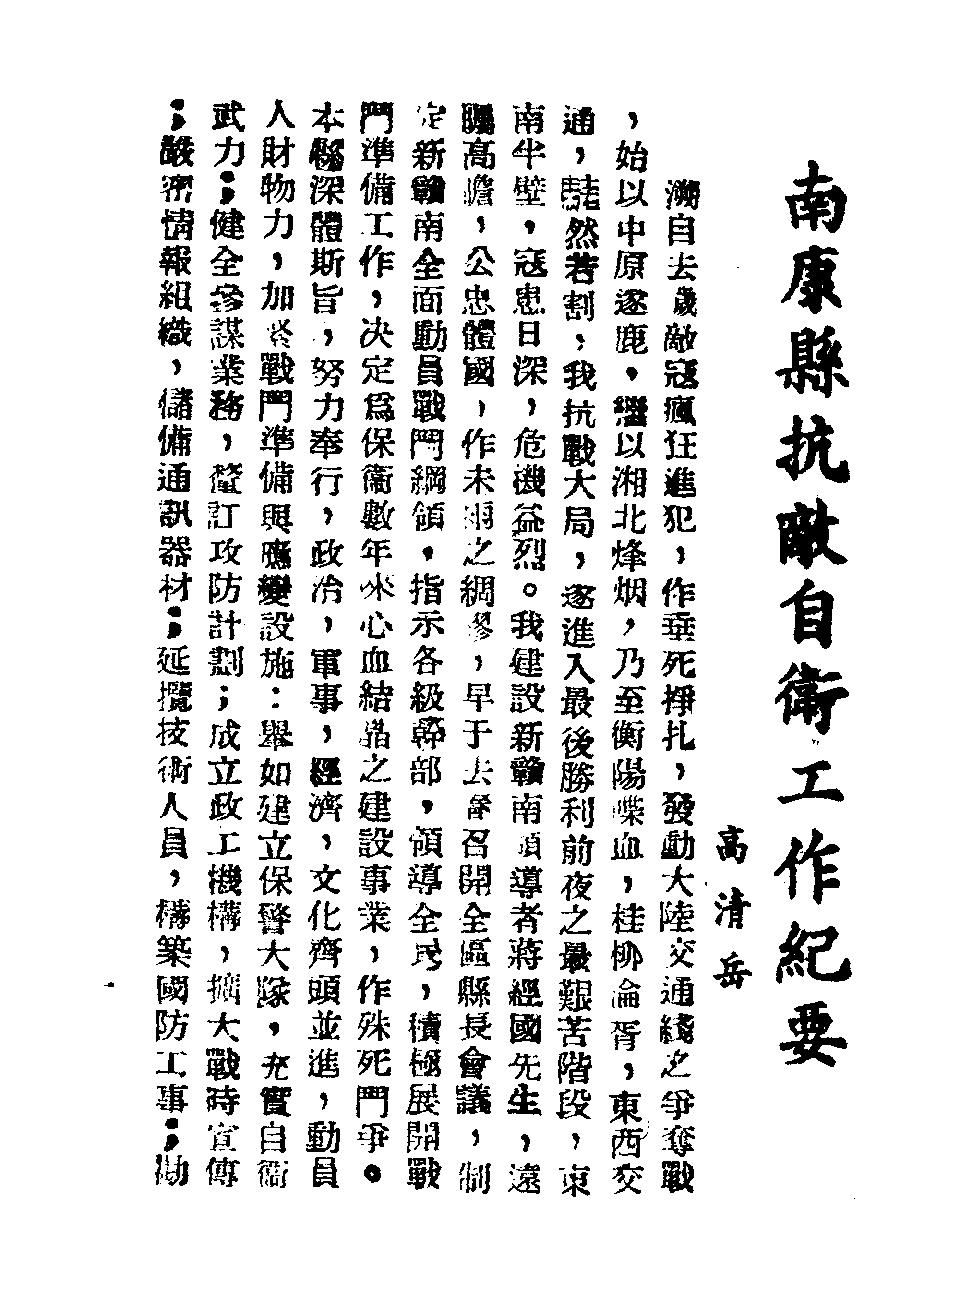 南康縣抗敵自衛工作紀要
高清岳
溯自去歲敵寇瘋狂進犯，作垂死掙扎，發動大陸交通綫之爭奪戰
，始以中原逐鹿，繼以湘北烽烟，乃至衡陽喋血，桂柳淪胥，東西交
通，譁然若割，我抗戰大局，遂進入最後勝利前夜之最艱苦階段，東
南半壁，寇患日深，危機益烈。我建設新贛南領導者蔣經國先生，遠
矚高瞻，公忠體國，作未雨之綢繆，早于去春召開全區縣長會議，制
定新贛南全面動員戰鬥綱領，指示各級幹部，領導全民，積極展開戰
鬥準備工作，決定爲保衞數年來心血結晶之建設事業，作殊死鬥爭。
本縣深體斯旨，努力奉行，政治，軍事，經濟，文化齊頭並進，動員
人財物力，加緊戰鬥準備與應變設施：舉如建立保警大隊，充實自衞
武力；健全參謀業務，釐訂攻防計劃；成立政工機構，擴大戰時宣傳
；嚴密情報組織，儲備通訊器材；延攬技術人員，構築國防工事；勘